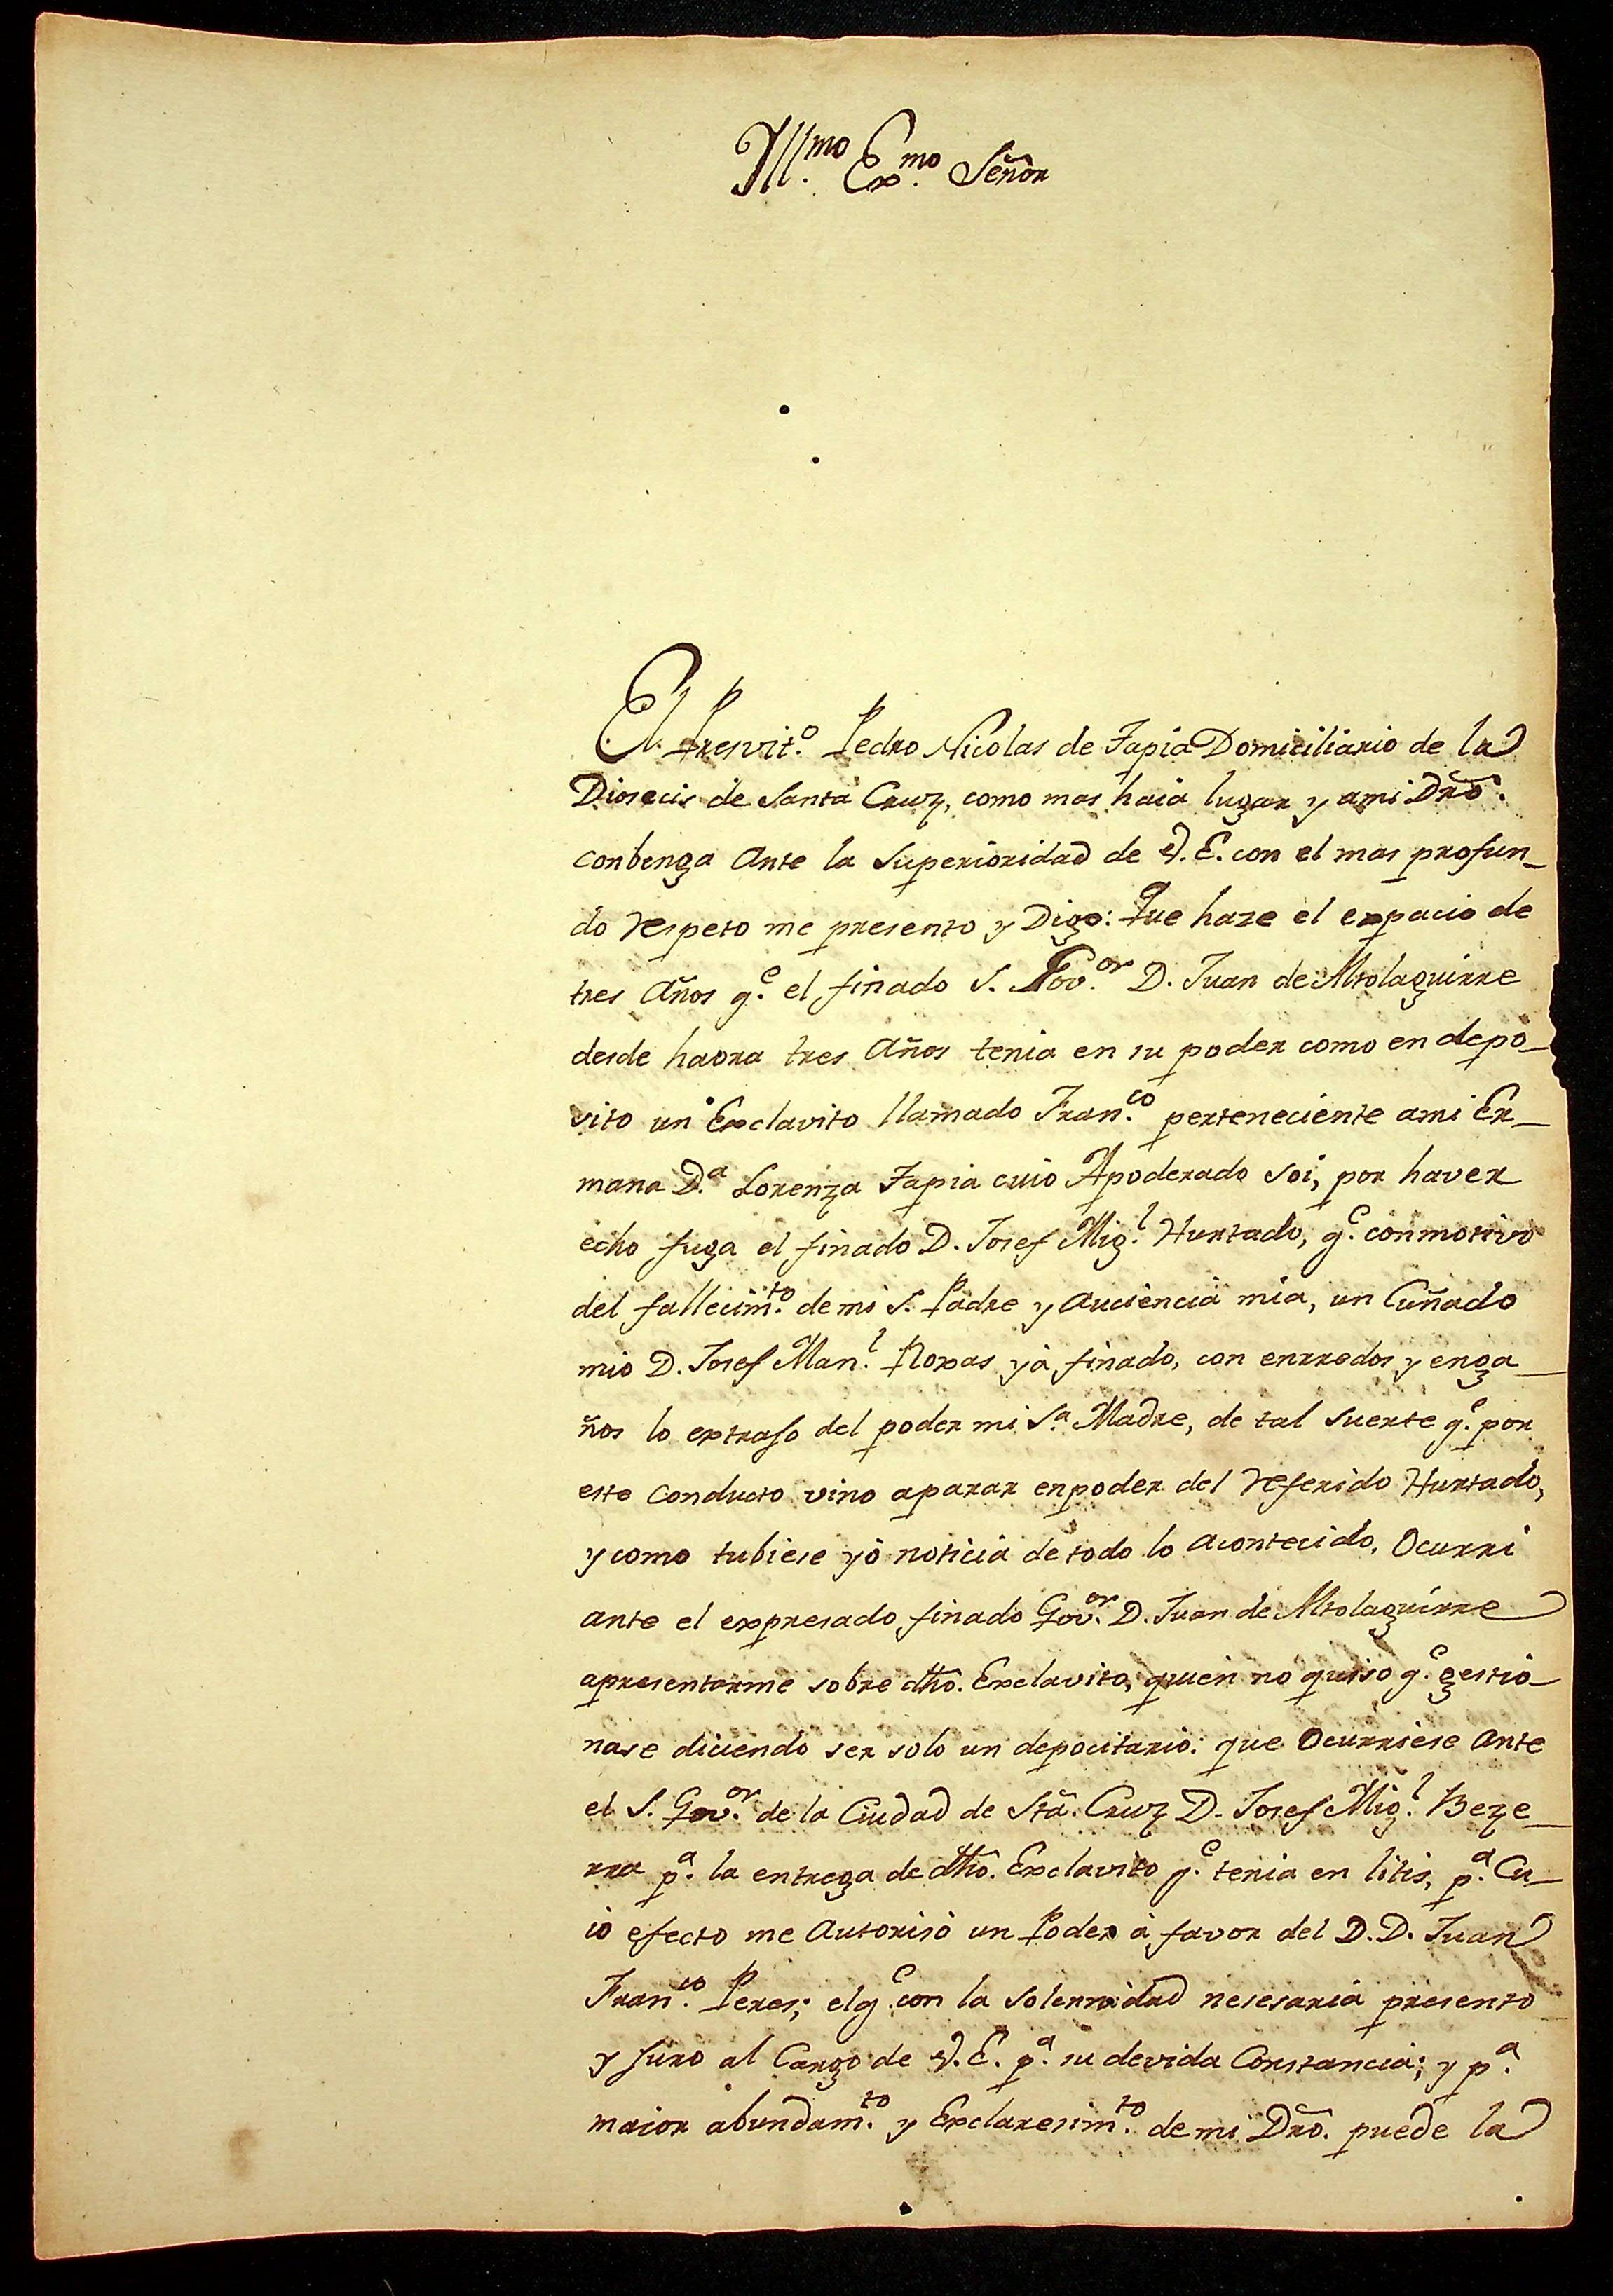 Yll.mo Ex.mo Señor
El Presvit.o Pedro Nicolas de Tapia Domiciliario de la
Diosecis de Santa Cruz, como mas haia lugar y ami Dro.
conbenga Ante la Superioridad de V. E. con el mas profun-
do respeto me presento y Digo: Que haze el expacio de
tres Años q.e el finado S. Gov.or D. Juan de Altolaguirre
desde haora tres Años tenia en su poder como en depo-
sito un Exclavito llamado Fran.co perteneciente ami Er-
mana D.a Lorenza Tapia cuio Apoderado soi, por haver
echo fuga el finado D. Josef Mig.l Hurtado, q.e conmotivo
del fallecim.to de mi S. Padre y Auciencia mia, un Cuñado
mio D. Josef Man.l Roxas yà finado, con enrredos y enga-
ños lo extrajo del poder mi S.a Madre, de tal suerte q.e por
este conducto vino aparar enpoder del referido Hurtado,
y como tubiese yò noticia de todo lo Acontecido, Ocurri
ante el expresado finado Gov.or D. Juan de Altolaguirre
apresentarme sobre dho. Exclavito, quien no quiso q.e gestio-
nase diciendo ser solo un depocitario: que Ocurriese Ante
el S. Gov.or de la Ciudad de Sta. Cruz D. Josef Mig.l Beze-
rra p.a la entrega de dho. Exclavito q.e tenia en litis, p.a Cu-
io efecto me Autorisò un Poder à favor del D. D. Juan
Fran.co Peres; elq.e con la solemnidad nesesaria presento
y juro al Cargo de V. E. p.a su devida Constancia; y p.a
maior abundam.to y Exclaresim.to de mi Dro. puede la